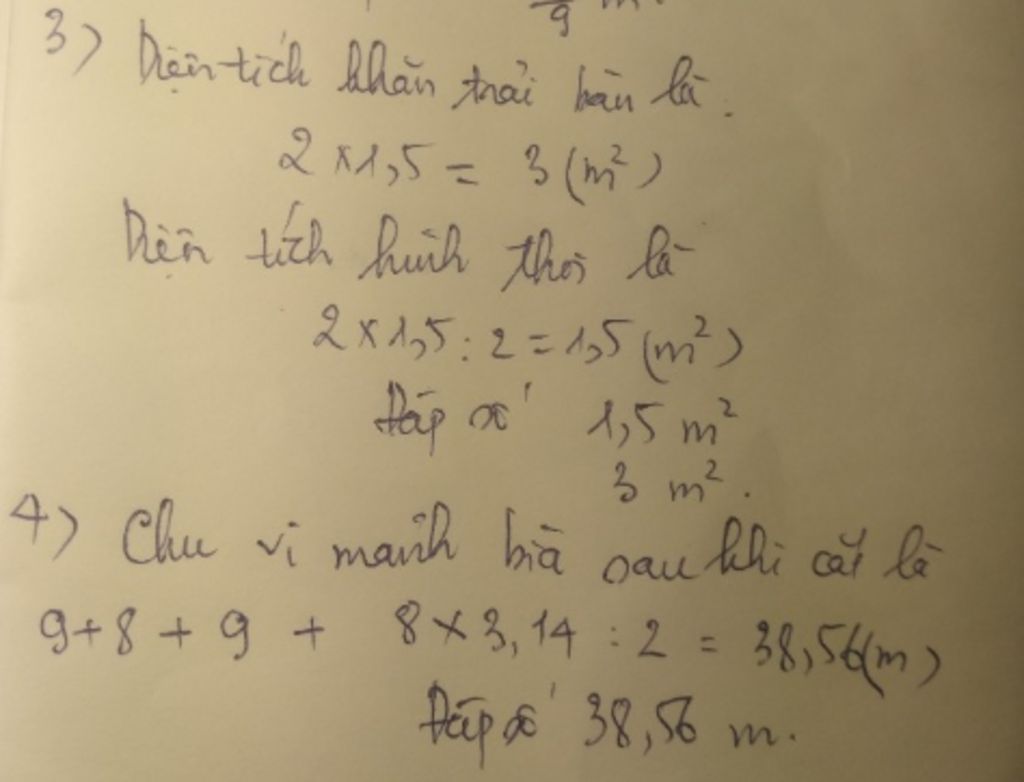 9 m
3) Diện tích khăn trải bàn là.
2 × 1,5 = 3 (m²)
Diện tích hình thoi là
2 × 1,5 : 2 = 1,5 (m²)
Đáp số 1,5 m²
3 m².
4) Chu vi mảnh bìa sau khi cắt là
9 + 8 + 9 + 8 × 3,14 : 2 = 38,56 (m)
Đáp số 38,56 m.